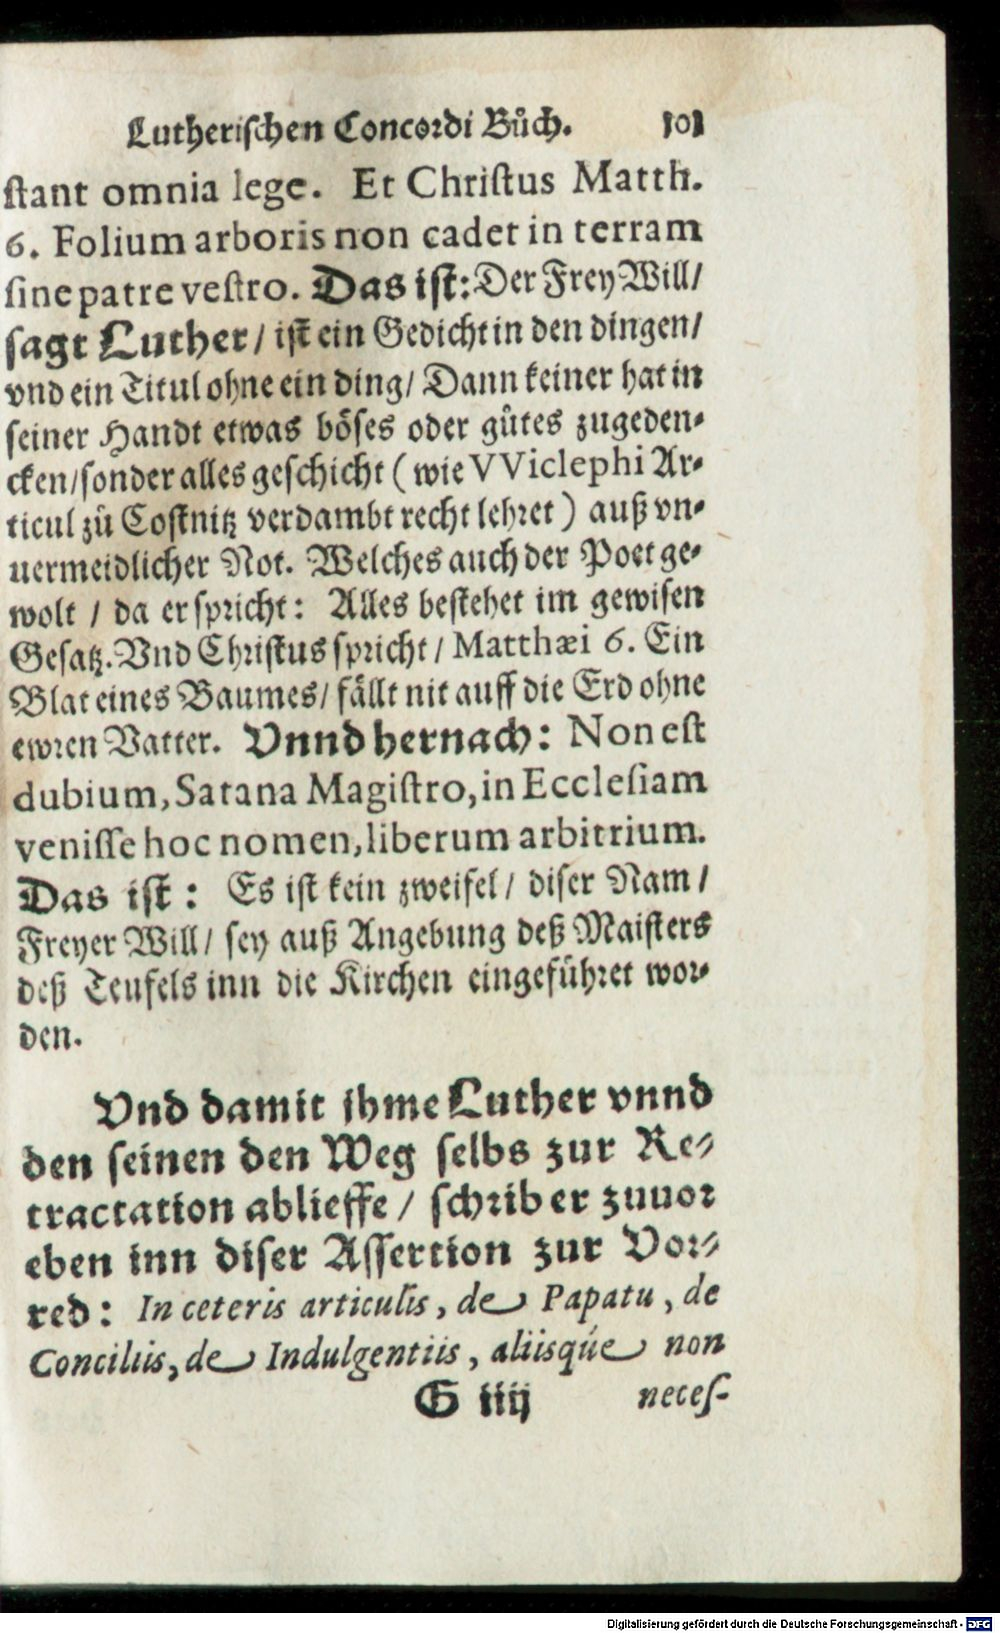 Lutherischen Concordi Bůch. 101
ſtant omnia lege. Et Chriſtus Matth.
6. Folium arboris non cadet in terram
ſine patre veſtro. Das iſt: Der Frey Will/
ſagt Luther/ iſt ein Gedicht in den dingen/
vnd ein Titul ohne ein ding/ Dann keiner hat in
ſeiner Handt etwas böſes oder gůtes zugeden-
cken/ſonder alles geſchicht (wie VViclephi Ar-
ticul zů Coſtnitz verdambt recht lehret) auß vn-
uermeidlicher Not. Welches auch der Poet ge-
wolt / da er ſpricht: Alles beſtehet im gewiſen
Geſatz. Vnd Chriſtus ſpricht/ Matthæi 6. Ein
Blat eines Baumes/ fällt nit auff die Erd ohne
ewren Vatter. Vnnd hernach: Non eſt
dubium, Satana Magiſtro, in Eccleſiam
veniſſe hoc nomen, liberum arbitrium.
Das iſt: Es iſt kein zweifel/ diſer Nam/
Freyer Will/ ſey auß Angebung deß Maiſters
deß Teufels inn die Kirchen eingeführet wor-
den.
Vnd damit ihme Luther vnnd
den ſeinen den Weg ſelbs zur Re-
tractation ablieffe/ ſchrib er zuuor
eben inn diſer Aſſertion zur Vor-
red: In ceteris articulis, de Papatu, de
Conciliis, de Indulgentiis, aliisqúe non
G iiij neceſ-
Digitalisierung gefördert durch die Deutsche Forschungsgemeinschaft - DFG